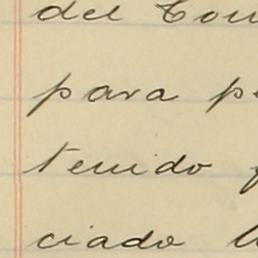 del Con
para pe
tenido
ciado